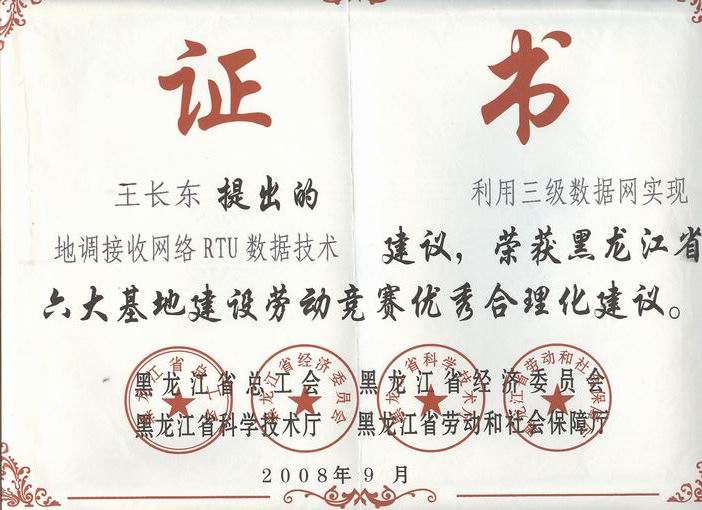 证 书
王长东 提出的 利用三级数据网实现
地调接收网络 RTU 数据技术 建议，荣获黑龙江省
六大基地建设劳动竞赛优秀合理化建议。
黑龙江省总工会 黑龙江省经济委员会
黑龙江省科学技术厅 黑龙江省劳动和社会保障厅
2008年9月